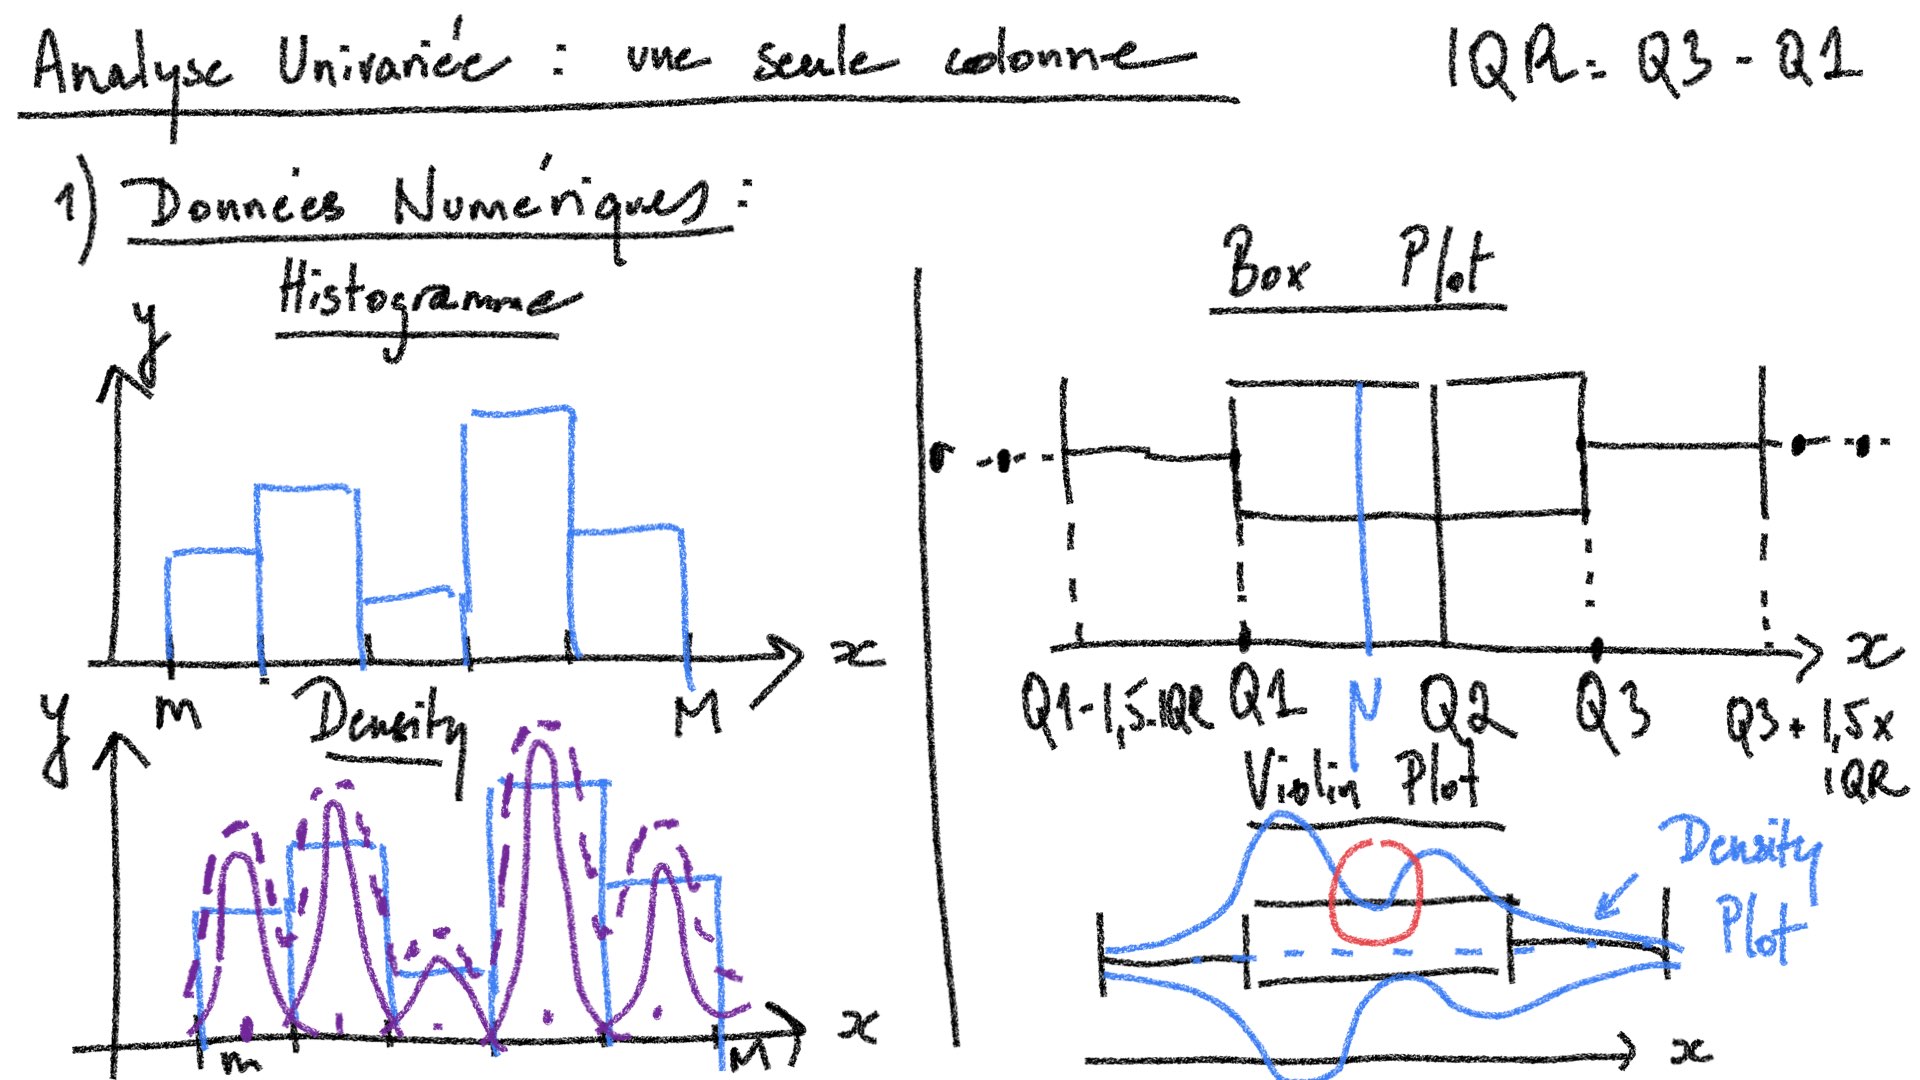 Analyse Univariée : une seule colonne
IQR = Q3 - Q1
1) Données Numériques :
Histogramme
y
x
m
M
Density
y
x
m
M
Box Plot
x
Q1-1,5-IQR
Q1
N
Q2
Q3
Q3 + 1,5x
IQR
Violin Plot
Density
Plot
x